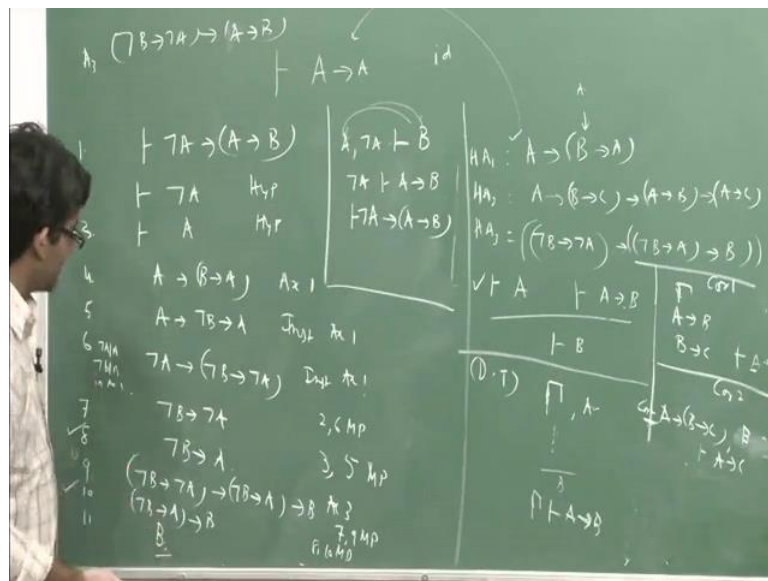 A3 (¬B→¬A)→(A→B)
⊢ A→A id
1. ⊢ ¬A→(A→B)
⊢ ¬A Hyp
3. ⊢ A Hyp
4 A→(B→A) Ax 1
5 A→¬B→A Inst Ax 1
6 ¬A→(¬B→¬A) Inst Ax 1
7 ¬B→¬A 2,6 MP
8 ¬B→A 3, 5 MP
9 (¬B→¬A)→(¬B→A)→B Ax 3
10 (¬B→A)→B 7,9 MP
11 B 8,10 MP
A, ¬A ⊢ B
¬A ⊢ A→B
⊢¬A→(A→B)
A
↓
HA1 : A→(B→A)
HA2 : A→(B→C)→(A→B)→(A→C)
HA3 = ((¬B→¬A)→((¬B→A)→B))
✓⊢ A ⊢ A→B
⊢ B
(D.T) Γ, A
⋮
B
Γ ⊢ A→B
Cor 1
Γ
A→B
B→C ⊢ A→
Cor 2
A→(B→C), B
⊢ A→C